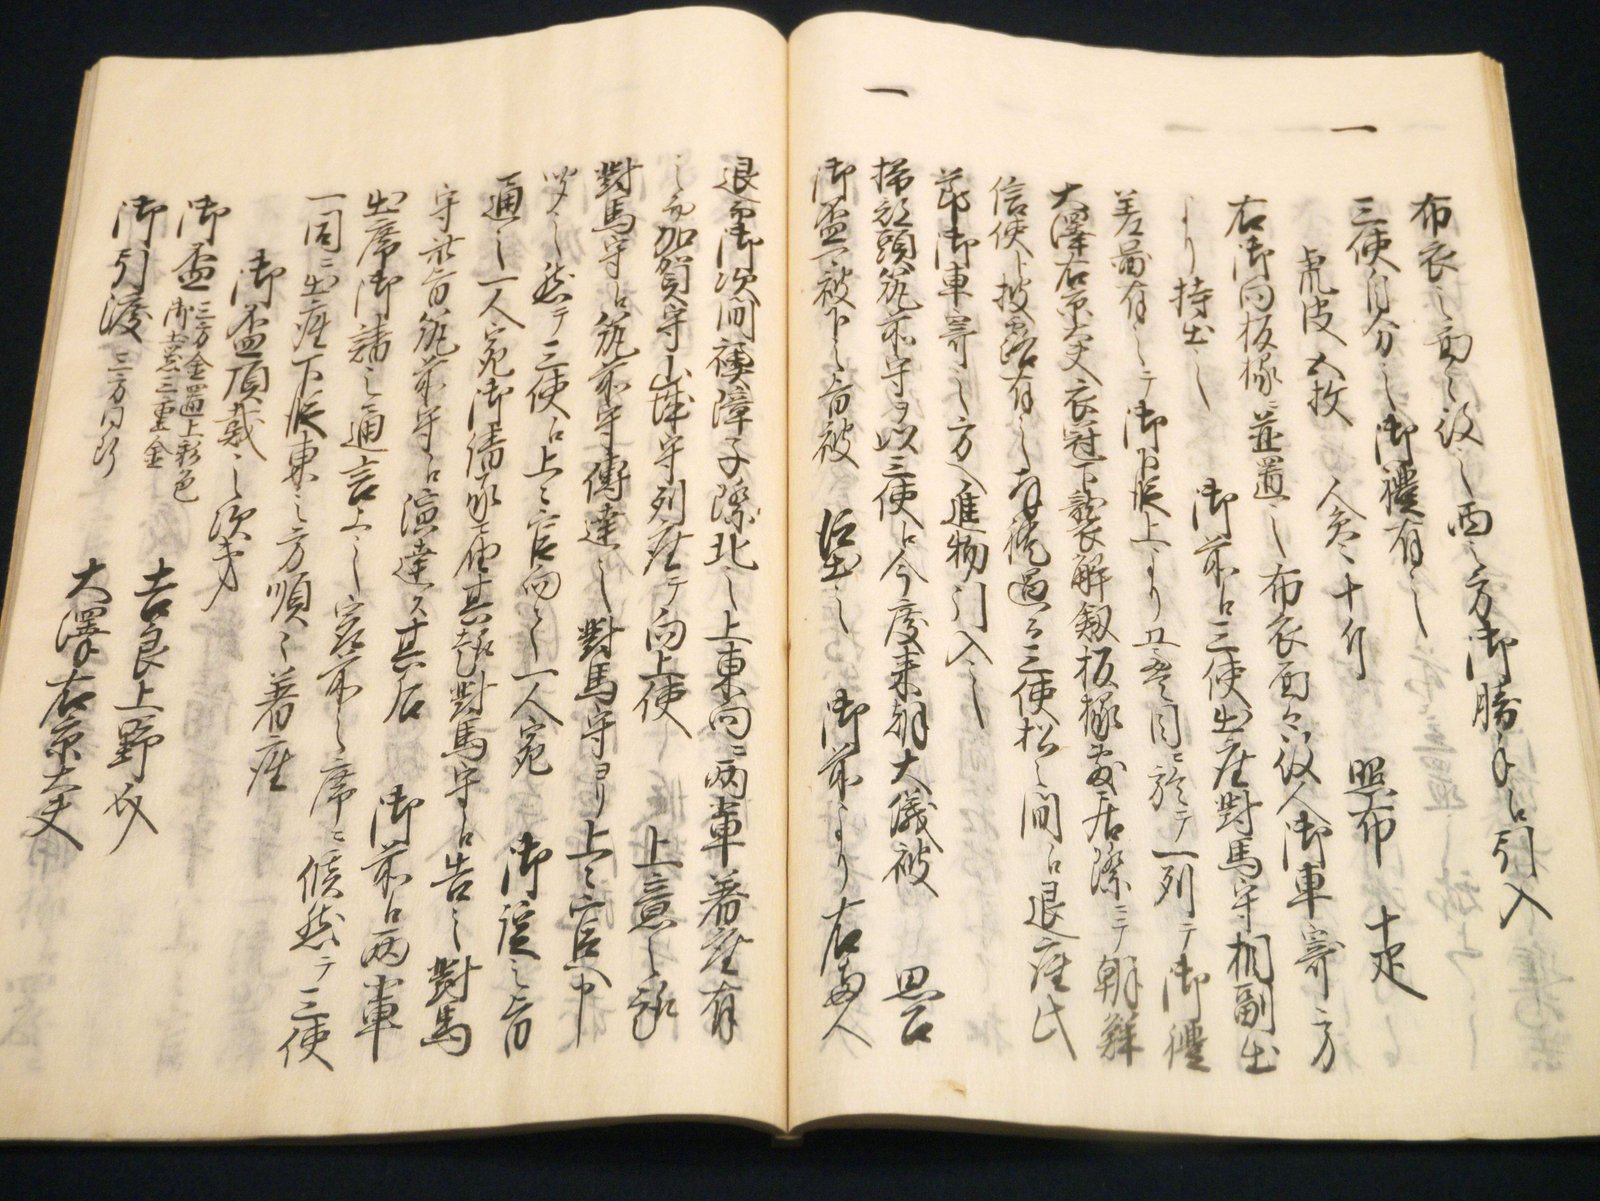 布衣之面々役之西之方御勝手江引入
一
三使自分之御禮有之
虎皮五枚 人參十斤 照布十疋
右御向板縁ニ並置之布衣面々役人御車寄方
より持出之 御前江三使出座對馬守相副出
差圖有之テ御下段上より 目ニ於テ一列ニテ御禮
大澤右京大夫衣冠下襲解劔板縁 居際ニテ朝鮮
信使ト披露有之 禮過る三使松之間江退座此
節御車寄之方へ進物引入之
一
掃部頭筑前守ヲ以三使江今度来朝大儀被 思召
御盃可被下之旨被 仰出之 御前より右両人
退而御次間襖障子際北之上東向ニ両輩着座有
之而加賀守山城守列座ニテ向上使 上意之趣
對馬守江筑前守傳達之對馬守ヨリ上々官へ申
 之然テ三使江上々官向之一人宛 御諚之旨
通之一人宛御請承 其趣對馬守江告之對馬
守 旨筑前守江演達ス其后 御前江両輩
出席御請之通言上之 前之席ニ候然テ三使
一同ニ出座下段東之方順々着座
御盃頂戴之次才
御盃 三方金置上彩色 御土器三重金
吉良上野介
御引渡 三方同断
大澤右京大夫